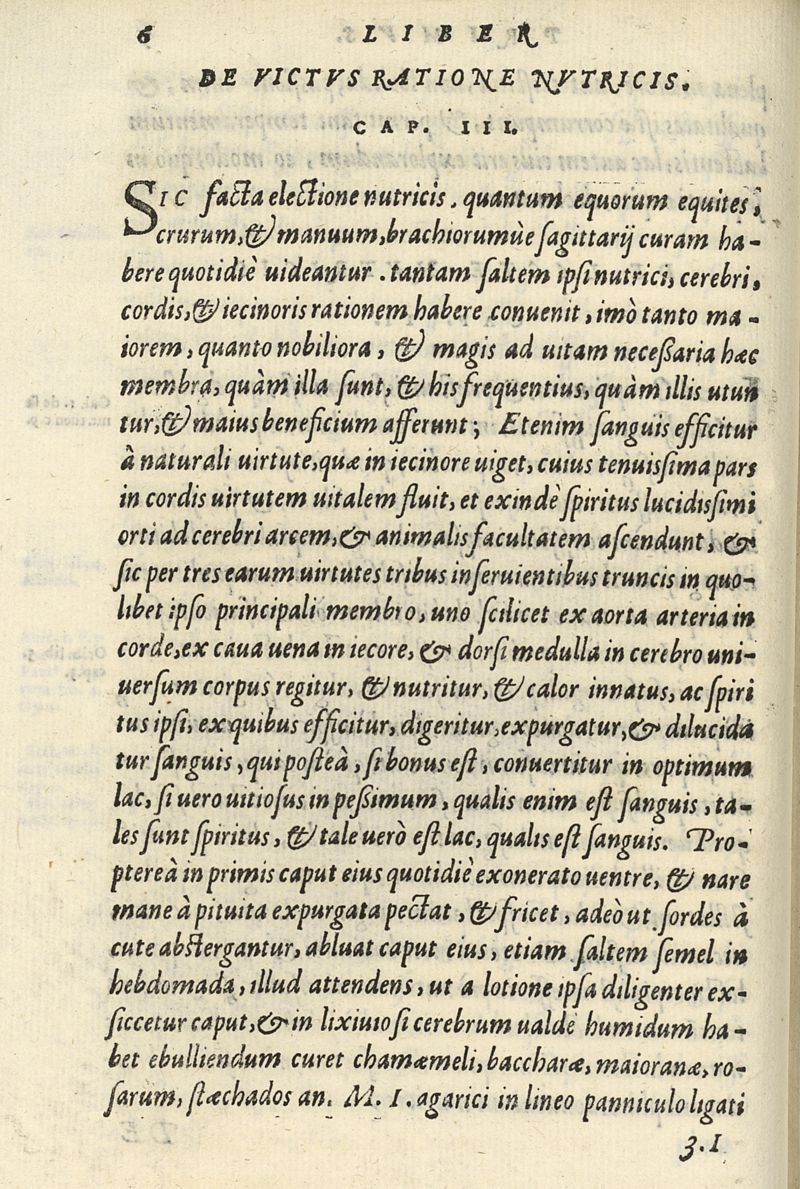 6 LIBER
DE VICTVS RATIONE NVTRICIS.
CAP. III.
SIC facta electione nutricis. quantum equorum equites,
crurum, & manuum, brachiorumùe sagittarij curam ha-
bere quotidiè uideantur. tantam saltem ipsi nutrici, cerebri,
cordis, & iecinoris rationem habere conuenit, imò tanto ma-
iorem, quanto nobiliora, & magis ad uitam neceßaria hæc
membra, quàm illa sunt, & his frequentius, quàm illis utun
tur, & maius beneficium afferunt; Etenim sanguis efficitur
à naturali uirtute, quæ in iecinore uiget, cuius tenuissima pars
in cordis uirtutem uitalem fluit, et exindè spiritus lucidissimi
orti ad cerebri arcem, & animalis facultatem ascendunt, &
sic per tres earum uirtutes tribus inseruientibus truncis in quo-
libet ipso principali membro, uno scilicet ex aorta arteria in
corde, ex caua uena in iecore, & dorsi medulla in cerebro uni-
uersum corpus regitur, & nutritur, & calor innatus, ac spiri
tus ipsi, ex quibus efficitur, digeritur, expurgatur, & dilucida
tur sanguis, qui posteà, si bonus est, conuertitur in optimum
lac, si uero uitiosus in peßimum, qualis enim est sanguis, ta-
les sunt spiritus, & tale uerò est lac, qualis est sanguis. Pro-
ptereà in primis caput eius quotidiè exonerato uentre, & nare
mane à pituita expurgata pectat, & fricet, adeò ut sordes à
cute abstergantur, abluat caput eius, etiam saltem semel in
hebdomada, illud attendens, ut a lotione ipsa diligenter ex-
siccetur caput, & in lixiuio si cerebrum ualdè humidum ha-
bet ebulliendum curet chamæmeli, baccharæ, maioranæ, ro-
sarum, stæchados an. M. I. agarici in lineo panniculo ligati
ʒ.I